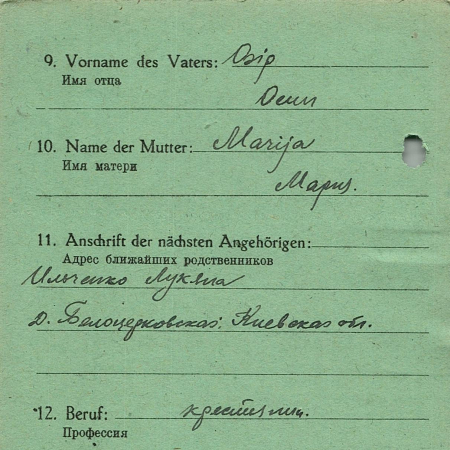 9. Vorname des Vaters: Osip
Имя отца
Осип
10. Name der Mutter: Marija
Имя матери
Мария.
11. Anschrift der nächsten Angehörigen:
Адрес ближайших родственников
Ильченко Лукяна
Д. Белоцерковская. Киевская обл.
12. Beruf: крестьянин.
Профессия